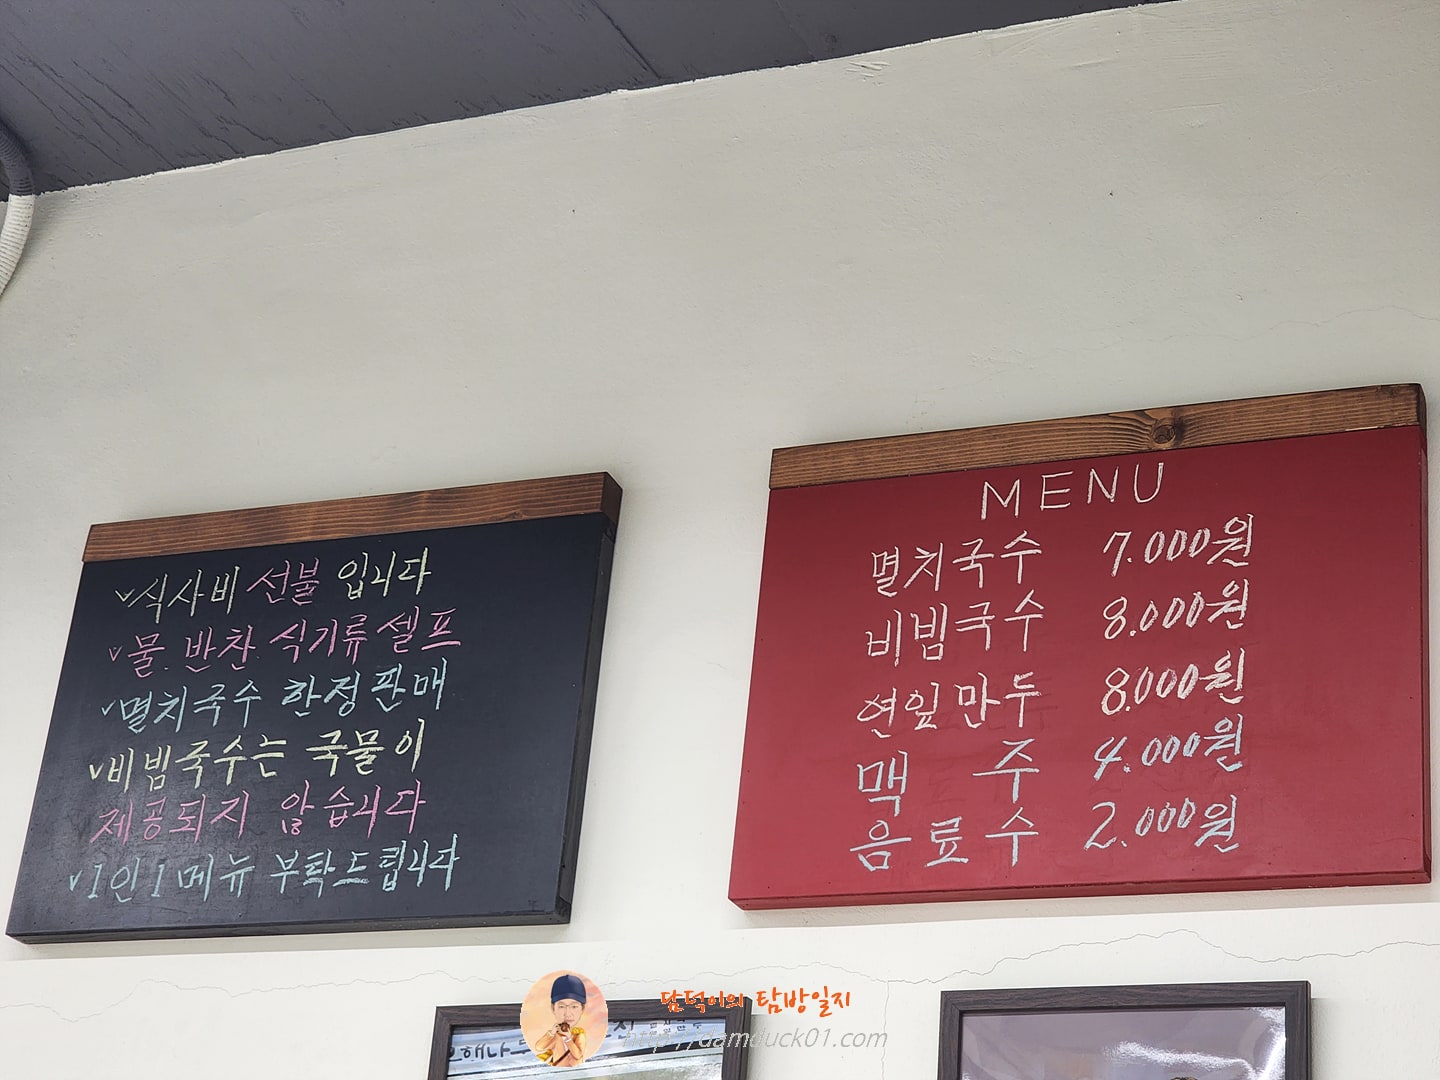 ✓식사비 선불 입니다
✓물. 반찬. 식기류 셀프
✓멸치국수 한정판매
✓비빔국수는 국물이
제공되지 않습니다
✓1인 1메뉴 부탁드립니다
MENU
멸치국수 7.000원
비빔국수 8.000원
연잎만두 8.000원
맥 주 4.000원
음료수 2.000원
담덕이의 탐방일지
http://damduck01.com